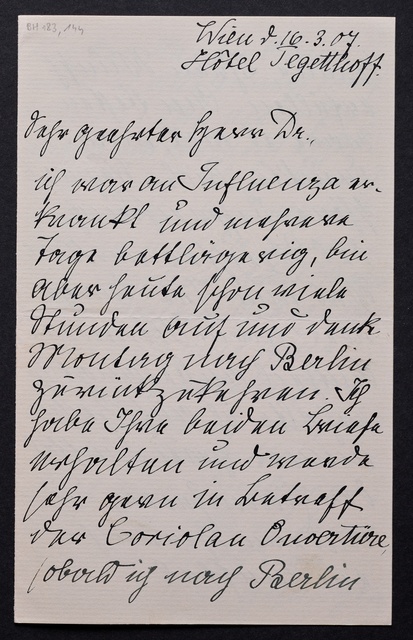 BH 183, 144
Wien d. 16. 3. 07.
Hôtel Tegetthoff.
Sehr geehrter Herr Dr.,
ich war an Influenza er-
krankt und mehrere
Tage bettlägerig, bin
aber heute schon viele
Stunden auf und denke
Montag nach Berlin
zurückzukehren. Ich
habe Ihre beiden Briefe
erhalten und werde
sehr gern in Betreff
der Coriolan Ouvertüre,
sobald ich nach Berlin